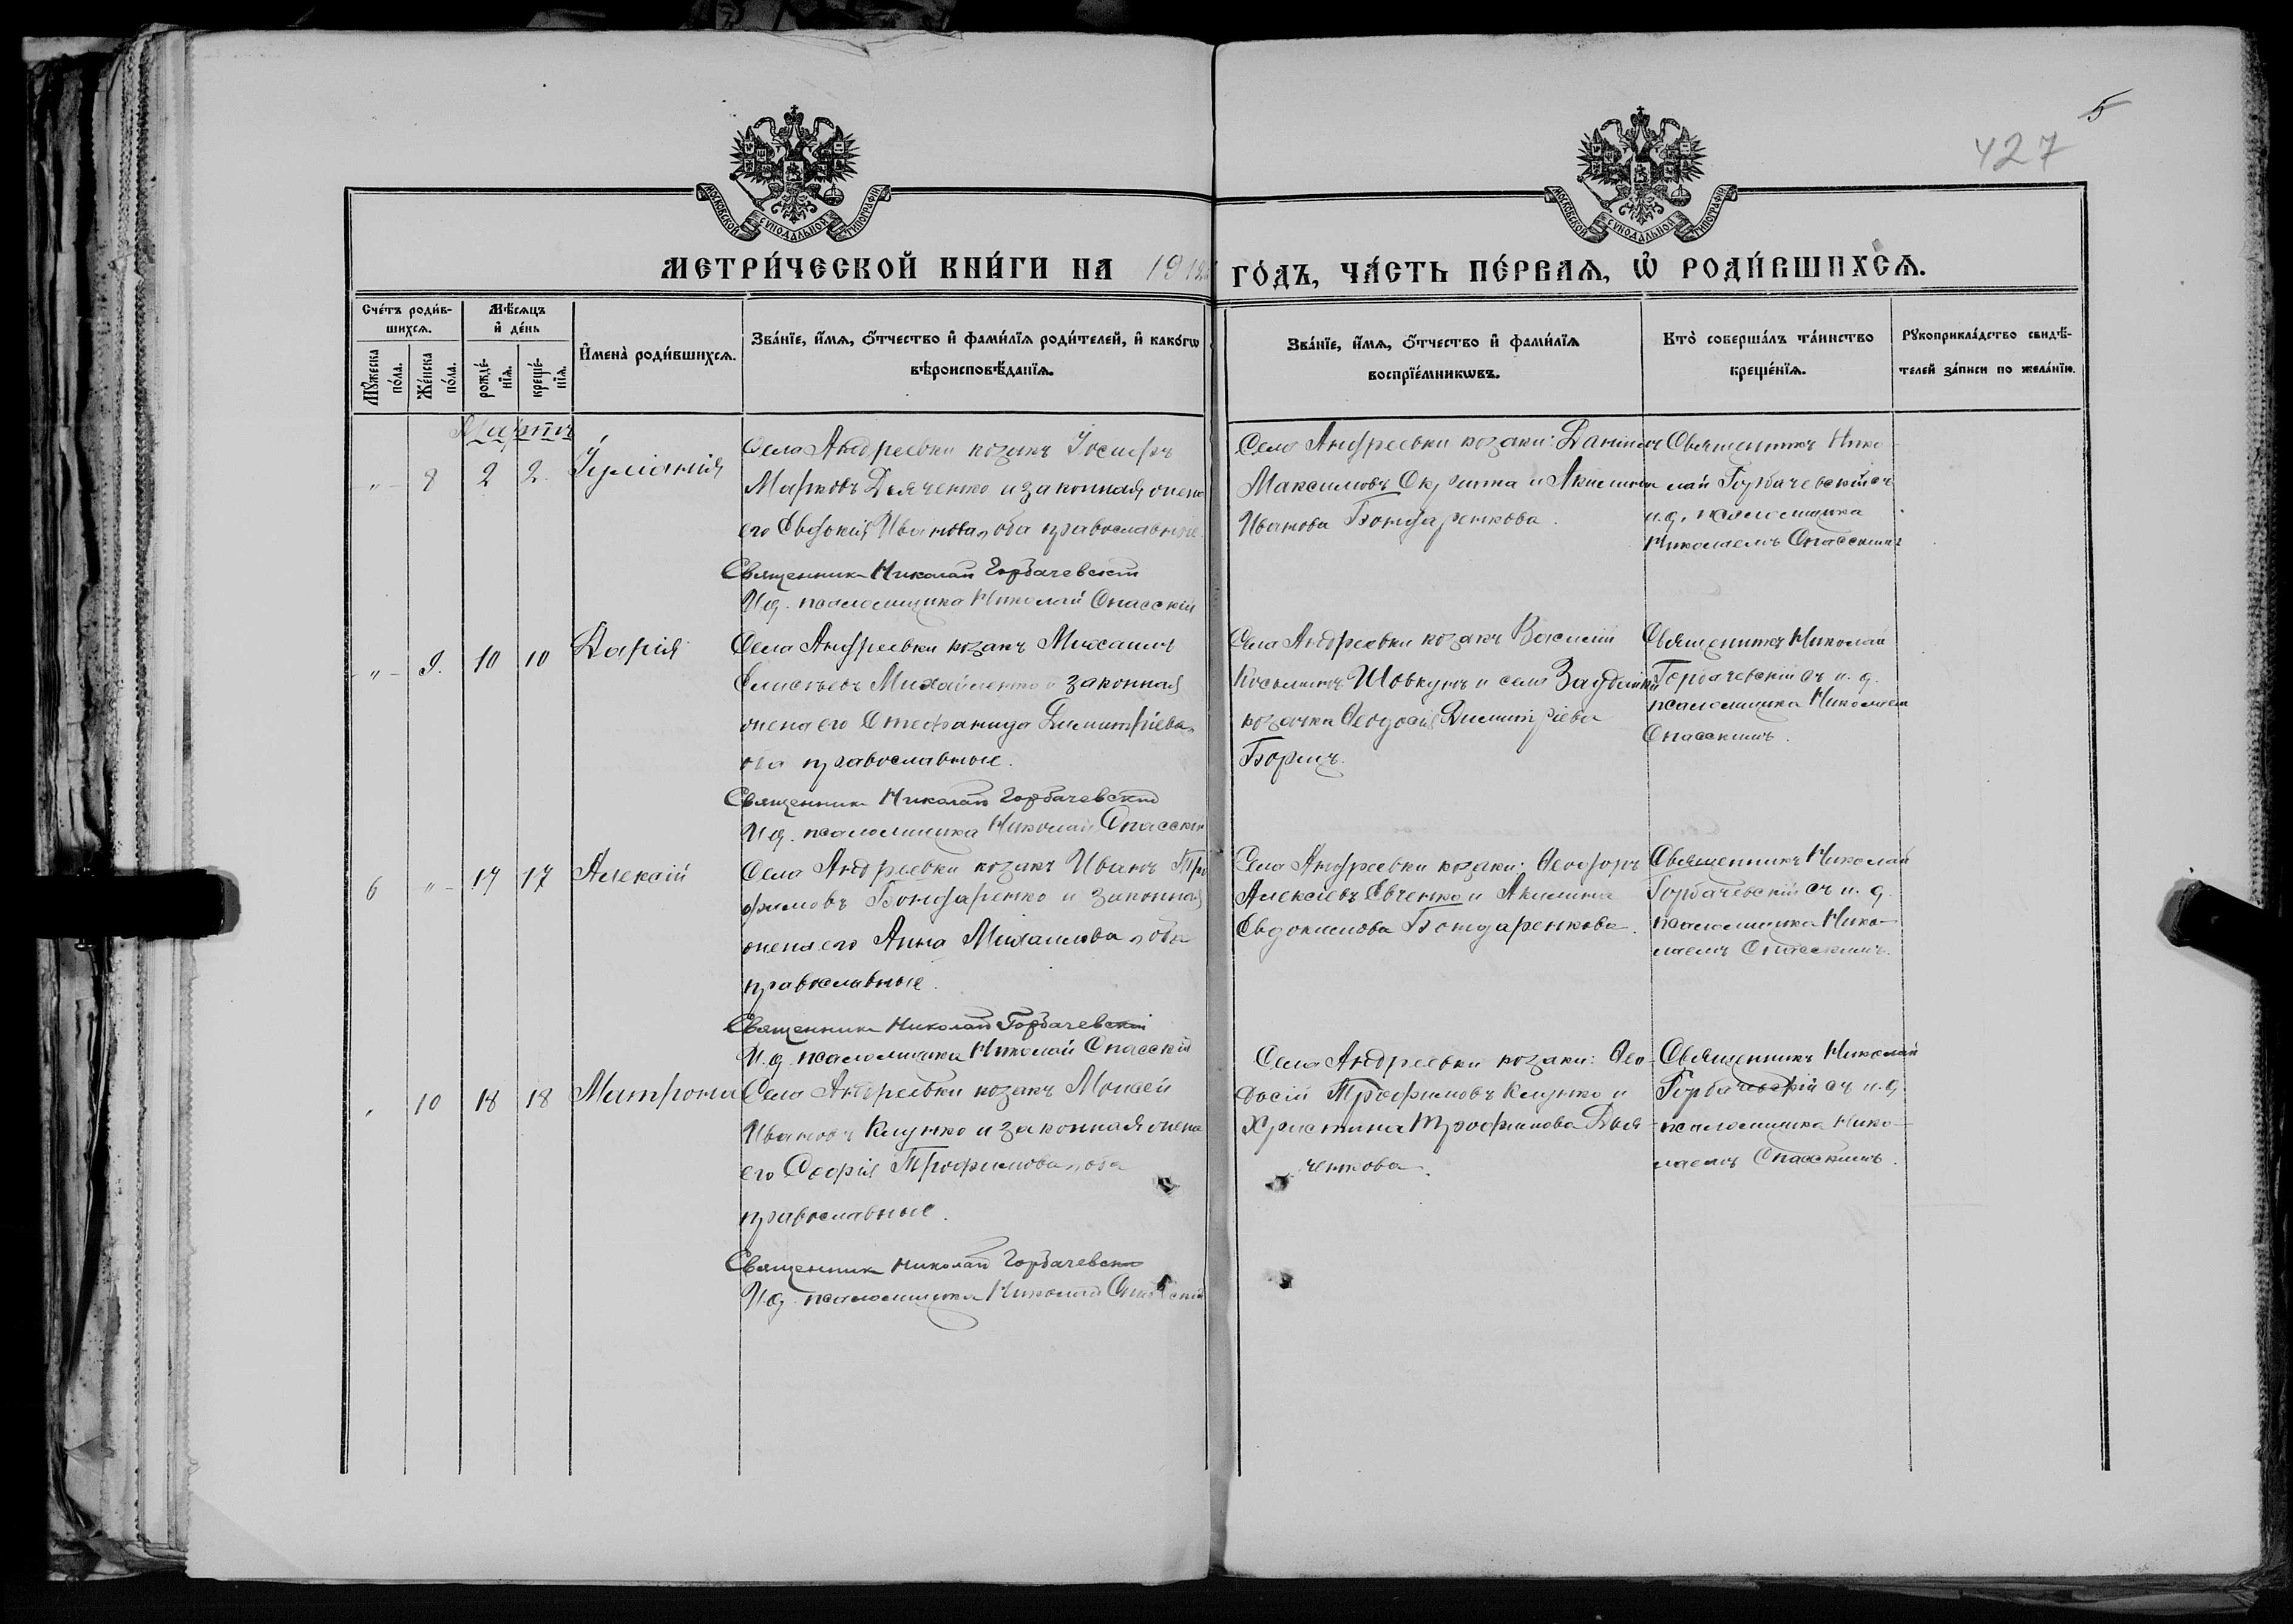 5
427
МОСКОВСКОЙ СѴНОДАЛЬНОЙ ТИПОГРАФІИ
МОСКОВСКОЙ СѴНОДАЛЬНОЙ ТИПОГРАФІИ
МЕТРИ́ЧЕСКОЙ КНИ́ГИ НА 1912 ГО́ДЪ, ЧА́СТЬ ПЕ́РВАѦ, Ѡ҆ РОДИ́ВШИХСѦ.
Сче́тъ роди́в-
шихсѧ.
Мѣ́сѧцъ
и҆ де́нь
Мꙋ́жеска
по́ла.
Же́нска
по́ла.
рожде́-
нїѧ.
креще́-
нїѧ.
И҆мена̀ роди́вшихсѧ.
Зва́нїе, и҆́мѧ, ѻ҆́тчество и҆ фами́лїѧ роди́телей, и҆ како́гѡ
вѣроисповѣ́данїѧ.
Зва́нїе, и҆́мѧ, ѻ҆́тчество и҆ фами́лїѧ
воспрїе́мникѡвъ.
Кто̀ соверша́лъ та́инство
креще́нїѧ.
Рꙋкоприкла́дство свидѣ́-
телей за́писи по жела́нїю.
Мартъ
" 8 2 2 Іуліанія
Села Андреевки козакъ Іосифъ
Марковъ Дьяченко и законная жена
его Евдокія Иванова, оба православные.
Священникъ Николай Горбачевскій
И. д. псаломщика Николай Спасскій
Села Андреевки козаки: Даніилъ
Максимовъ и Акилина
Иванова Бондаренкова.
Священникъ Нико-
лай Горбачевскій съ
и. д. псаломщика
Николаемъ Спасскимъ
" 9. 10 10 Дарія
Села Андреевки козакъ Михаилъ
Елисеевъ Михайленко и законная
жена его Стефанида Димитріева,
оба православные.
Священникъ Николай Горбачевскій
И. д. псаломщика Николай Спасскій
Села Андреевки козакъ Василій
Косьминъ Шовкунъ и села
козачка Ѳеодосія Димитріева
Борщъ.
Священникъ Николай
Горбачевскій съ и. д.
псаломщика Николаемъ
Спасскимъ.
6 " 17 17 Алексій
Села Андреевки козакъ Иванъ Тро-
фимовъ Бондаренко и законная
жена его Анна Михаилова, оба
православные.
Священникъ Николай Горбачевскій
И. д. псаломщика Николай Спасскій
Села Андреевки козаки: Ѳеодоръ
Алексіевъ Евченко и Акилина
Евдокимова Бондаренкова.
Священникъ Николай
Горбачевскій съ и. д.
псаломщика Нико-
лаемъ Спасскимъ.
" 10 18 18 Матрона
Села Андреевки козакъ Моисей
Ивановъ Клунко и законная жена
его Софія Трофимова, оба
православные.
Священникъ Николай Горбачевскій
И. д. псаломщика Николай Спасскій
Села Андреевки козаки: Ѳео-
досій Трофимовъ Клунко и
Христина Трофимова Дья-
ченкова.
Священникъ Николай
Горбачевскій съ и. д.
псаломщика Нико-
лаемъ Спасскимъ.